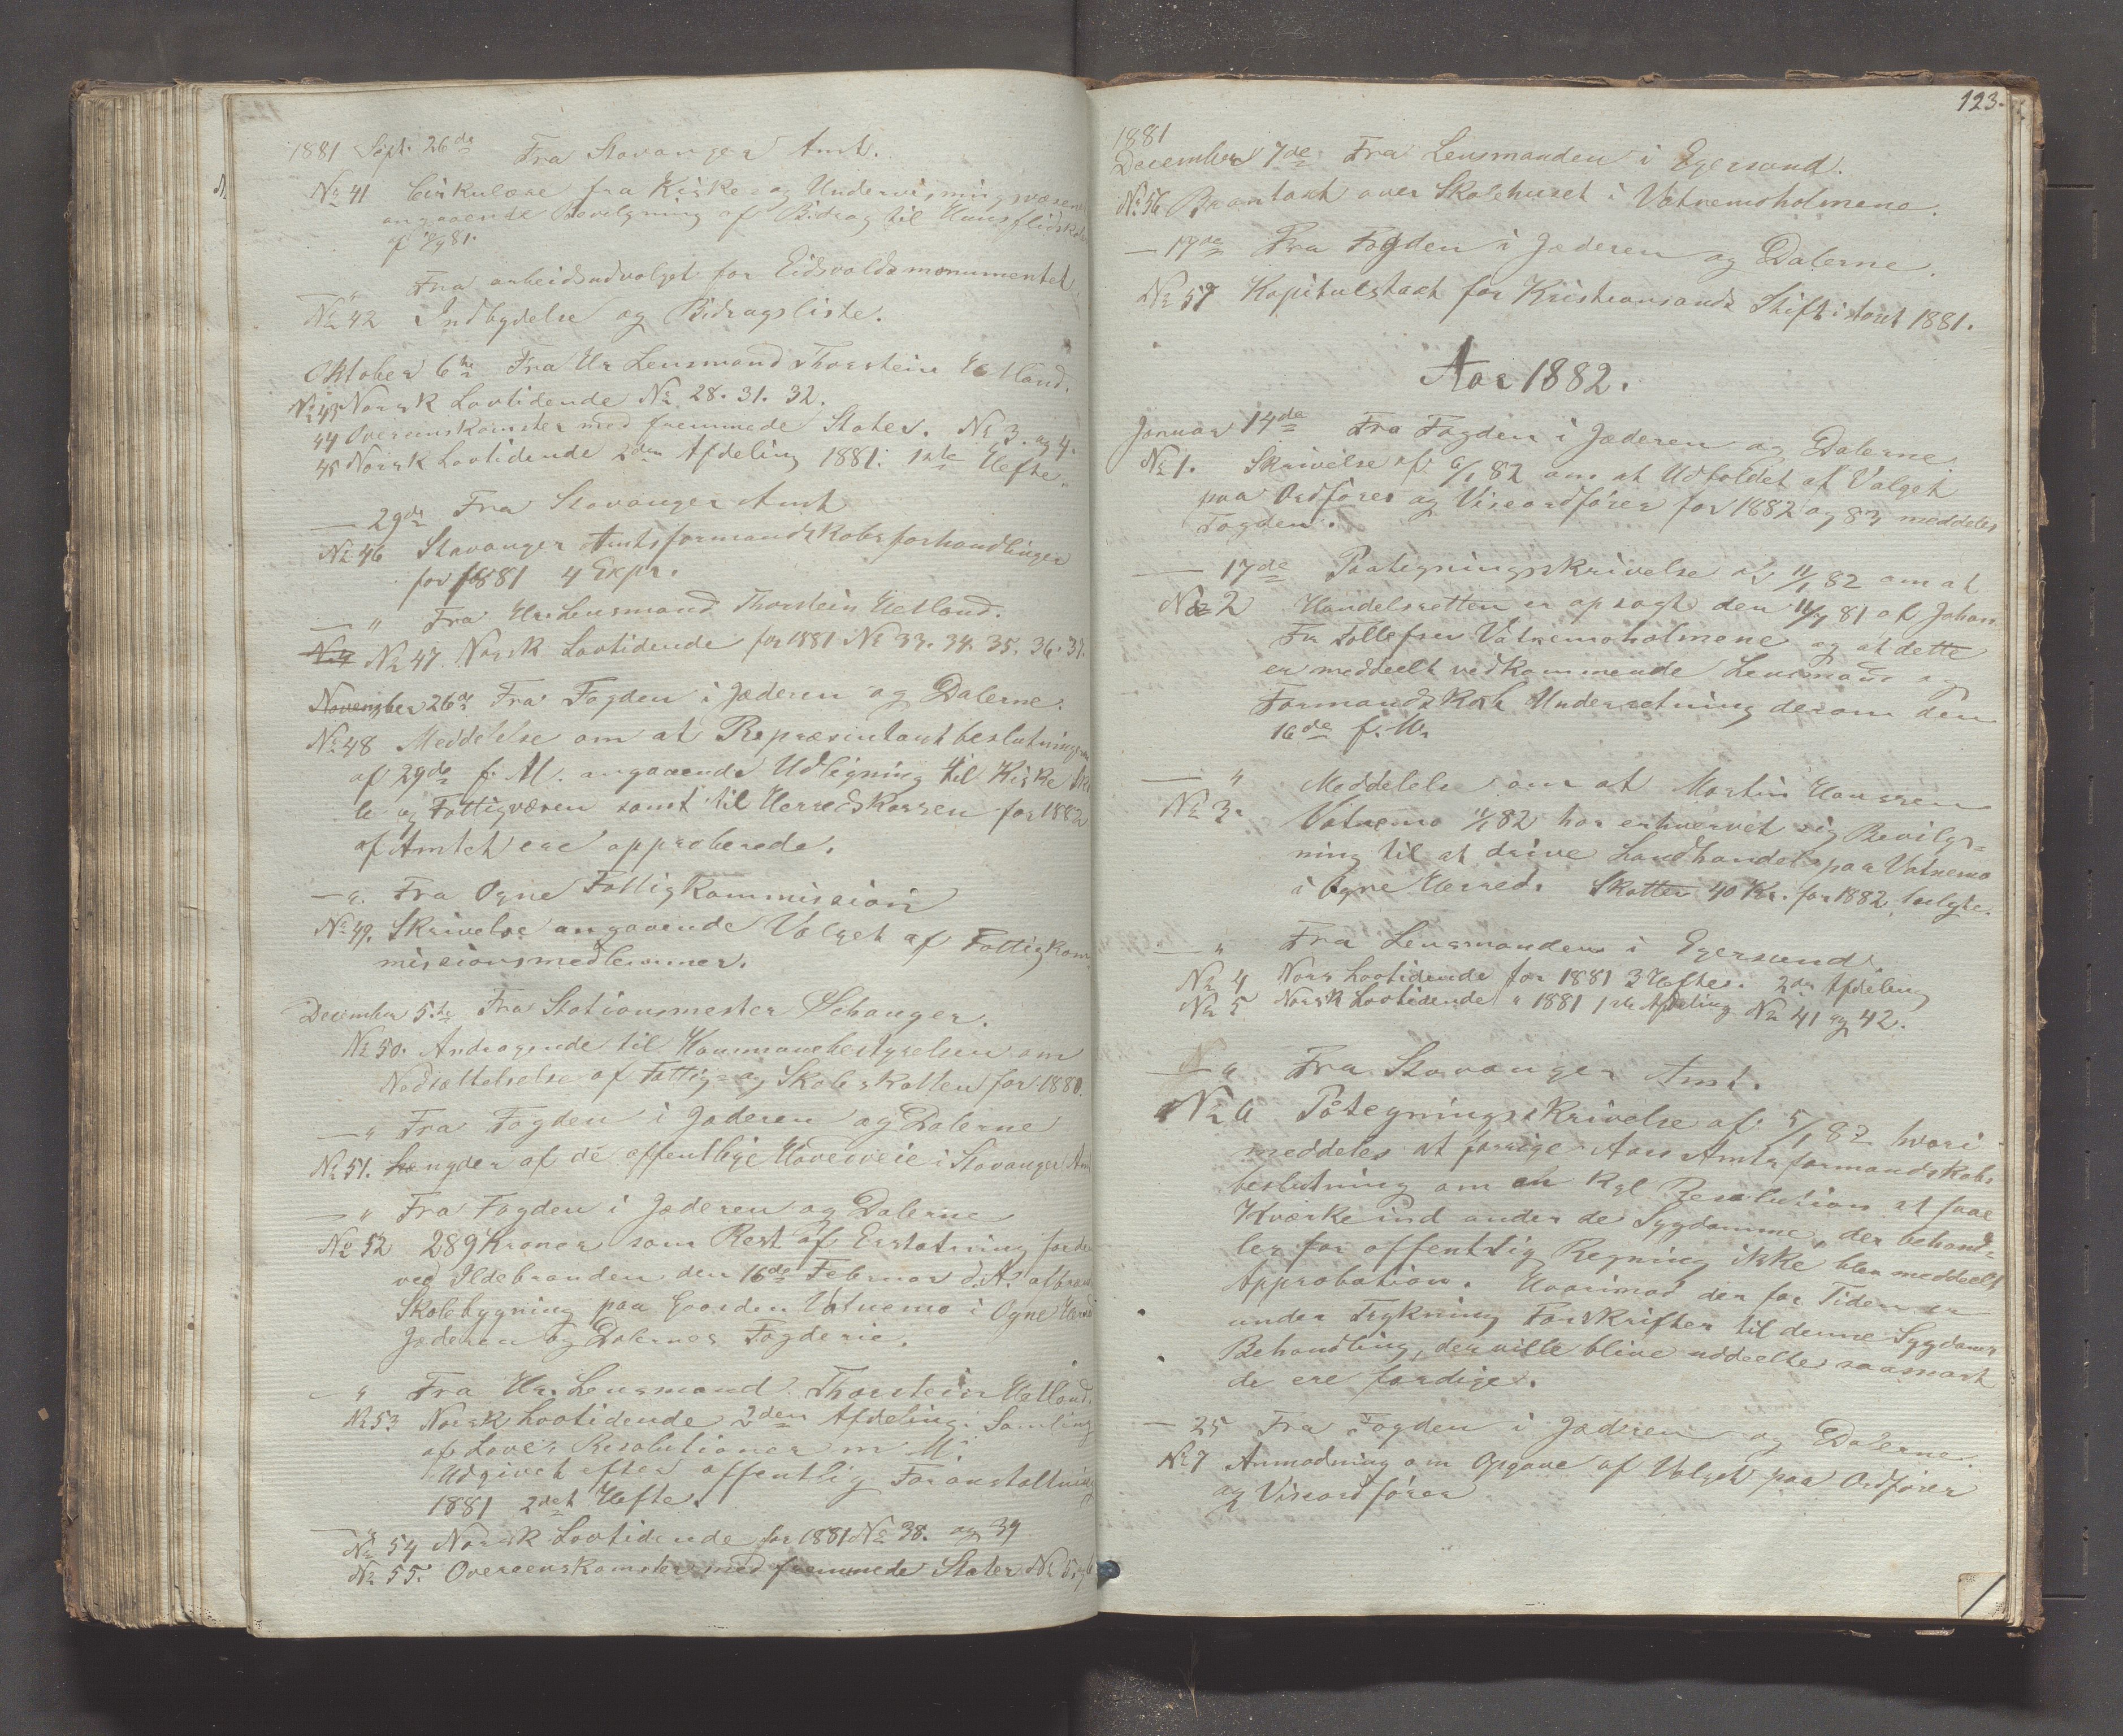 1881 Sept. 26de Fra Stavanger Amt.
No 41 Cirkulære fra Kirke- og Undervisningsvæsen
angaaende Bevilgning af Bidrag til Husflidskoler
— " Fra arbeidsudvalget for Eidsvoldsmonumentet
No 42 Indbydelse og Bidragsliste.
Oktober 6te Fra Hr Lensmand Thorstein Hetland.
No 43 Norsk Lovtidende No 28. 31. 32.
44 Overenskomster med fremmede Stater. No 3. og 4.
45 Norsk Lovtidende 2den Afdeling 1881. 1ste Hefte.
— 29de Fra Stavanger Amt
No 46 Stavanger Amtsformandskabsforhandlinger
for 1881 4 Expr.
— " Fra Hr. Lensmand Thorstein Hetland.
No 47. Norsk Lovtidende for 1881 No 33. 34. 35. 36. 37.
November 26de Fra Fogden i Jæderen og Dalerne.
No 48 Meddelelse om at Repræsentantbeslutningen
af 29de f. M. angaaende Udligning til Kirke Sko
le og Fattigvæsen samt til Herredskassen for 1882
af Amtet ere approberede.
— ". Fra Ogne Fattigkommission
No 49. Skrivelse angaaende Valget af Fattigkom-
missionsmedlemmer.
December 5.te Fra Stationsmester Schanger.
No 50. Andragende til Kommunebestyrelsen om
Nedsættelselse af Fattig- og Skoleskatten for 1880.
— " Fra Fogden i Jæderen og Dalerne
No 51. Længder af de offentlige Hovedveie i Stavanger Amt
— " Fra Fogden i Jæderen og Dalerne
No 52 289 Kroner som Rest af Erstatning for den
ved Ildebranden den 16de Februar d. A. afbrændte
Skolebygning paa Gaarden Vatnemo i Ogne Herred
Jæderen og Dalernes Fogderie.
— " Fra Hr. Lensmand Thorstein Hetland.
No 53 Norsk Lovtidende 2den Afdeling. Samling
af Love, Resolutioner m. M.
Udgivet efter offentlig Foranstaltning
1881 2det Hefte.
— " No 54 Norsk Lovtidende for 1881 No 38. og 39
No 55. Overenskomster med fremmede Stater No 5. og 6
123.
1881
December 7de Fra Lensmanden i Egersund.
No 56 Branntaxt over Skolehuset i Vatnemoholmene.
— 17de Fra Fogden i Jæderen og Dalerne.
No 57 Kapitulstaxt for Kristiansands Stift i Aaret 1881.
Aar 1882.
Januar 14de Fra Fogden i Jæderen og Dalerne.
No 1. Skrivelse af 6/1 82 om at Udfaldet af Valget
paa Ordfører og Viseordfører for 1882 og 83 meddeles
Fogden.
— 17de Paategningsskrivelse af 11/1 82 om at
No 2 Handelsretten er opsagt den 81 af Johan
Fr Tollefsen Vatnemoholmene og at dette
er meddeelt vedkommende Lensmand og
Formandskab Underretning derom den
16de f. M.
— " Meddelelse om at Martin Hanssen
No 3. Vatnemo 82 har erhvervet sig Bevilg=
ning til at drive Landhandel paa Vatnemo
i Ogne Herred. Skatten 40 Kr. for 1882
— " Fra Lensmanden i Egersund.
No 4 Nors Lovtidende for 1881 3 Hefte. 2den Afdeling
No 5 Norsk Lovtidende " 1881 1ste Afdeling No 41 og 42.
— " Fra Stavanger Amt.
No 6 Påtegningsskrivelse af 5/1 82 hvori
meddeles at forrige Aars Amtsformandskabs
beslutning om en Kgl Resolution at faae
Kværke ind under de Sygdomme, der behand=
les for offentlig Regning ikke blev meddeelt
Approbation. Hvorimod der for Tiden er
under Trykning Forskrifter til denne Sygdoms
Behandling, der ville blive uddeelte saasnart
de ere færdige.
— 25 Fra Fogden i Jæderen og Dalerne.
No 7 Anmodning om Opgave af Valget paa Ordfører
og Viseordfører